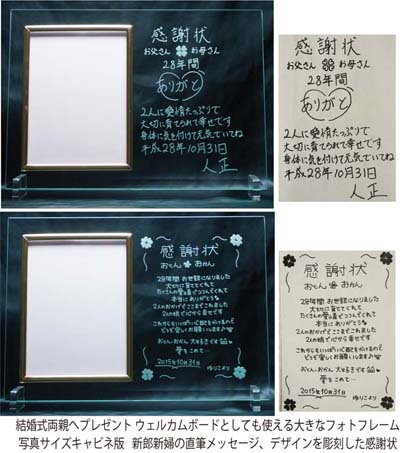 感謝状
お父さん お母さん
28年間
ありがと
2人に愛情たっぷりで
大切に育てられて幸せです
身体に気を付けて元気でいてね
平成28年10月31日
人正
感謝状
お父さん お母さん
28年間
ありがと
2人に愛情たっぷりで
大切に育てられて幸せです
身体に気を付けて元気でいてね
平成28年10月31日
人正
感謝状
おとん おかん
28年間 お世話になりました
大切に育ててくれて
たくさんの愛情でつつんでくれて
本当にありがとう
2人のおかげでここまでこれました
2人の娘で心から幸せです
これからもいっぱい心配をかけるけど
どうぞ宜しくお願いします
おとん・おかん 大好きです
愛をこめて…
2015年10月31日
ゆりこより
感謝状
おとん おかん
28年間 お世話になりました
大切に育ててくれて
たくさんの愛情でつつんでくれて
本当にありがとう
2人のおかげでここまでこれました
2人の娘で心から幸せです
これからもいっぱい心配をかけるけど
どうぞ宜しくお願いします
おとん・おかん 大好きです
愛をこめて…
2015年10月31日
ゆりこより
結婚式両親へプレゼント ウェルカムボードとしても使える大きなフォトフレーム
写真サイズキャビネ版 新郎新婦の直筆メッセージ、デザインを彫刻した感謝状